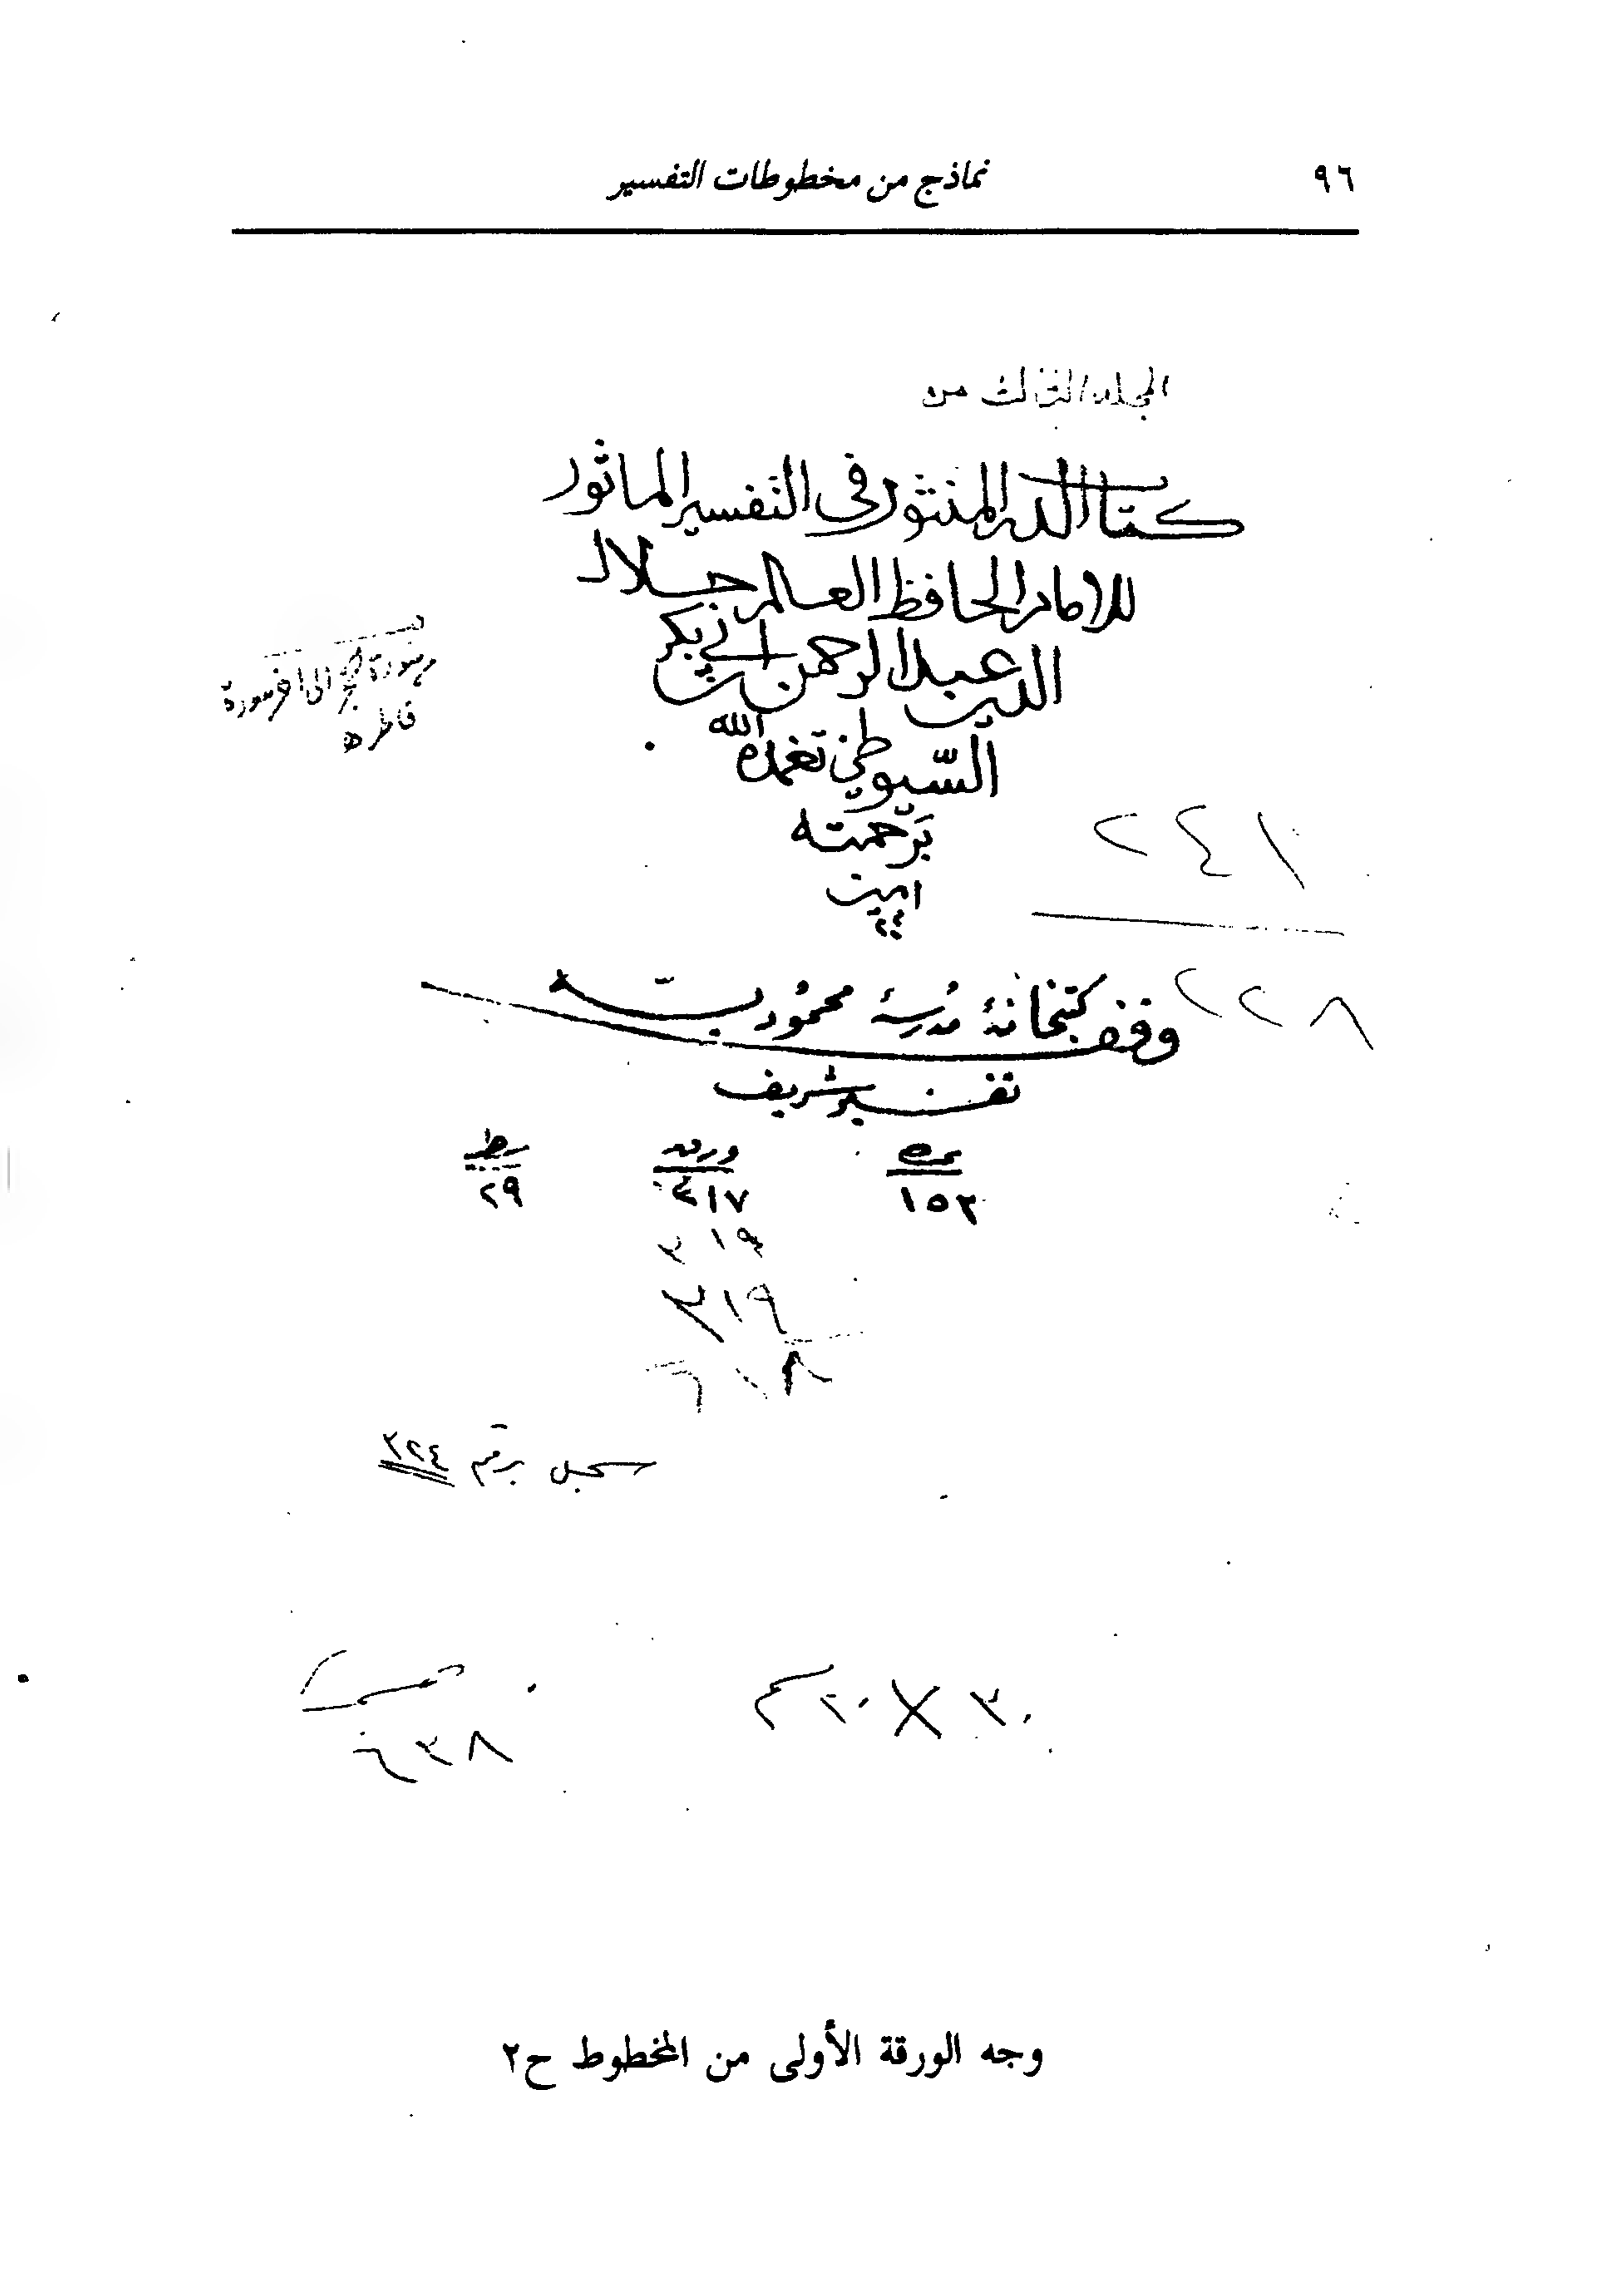 ٩٦
نماذج من مخطوطات التفسير
المجلد الثالث من
كتاب الدر المنثور فى التفسير الماثور
للامام الحافظ العالم جلال
الدين عبد الرحمن ابن ابي بكر
السيوطي تغمده الله
برحمته
امين
من سورة الى اخر سورة
فاطر
٢٤١
٢٢٨
وقف كتبخانهٔ مدرسهٔ محموديه
تفسير شريف
نمره ورقه سطر
١٥٣ ٤١٧ ٢٩
٣١٩
٣١٩
٦١٨
سجل برقم ٣٢٤
٣٠ × ٢٠ سم
٦٣٨
وجه الورقة الأولى من المخطوط ح٢